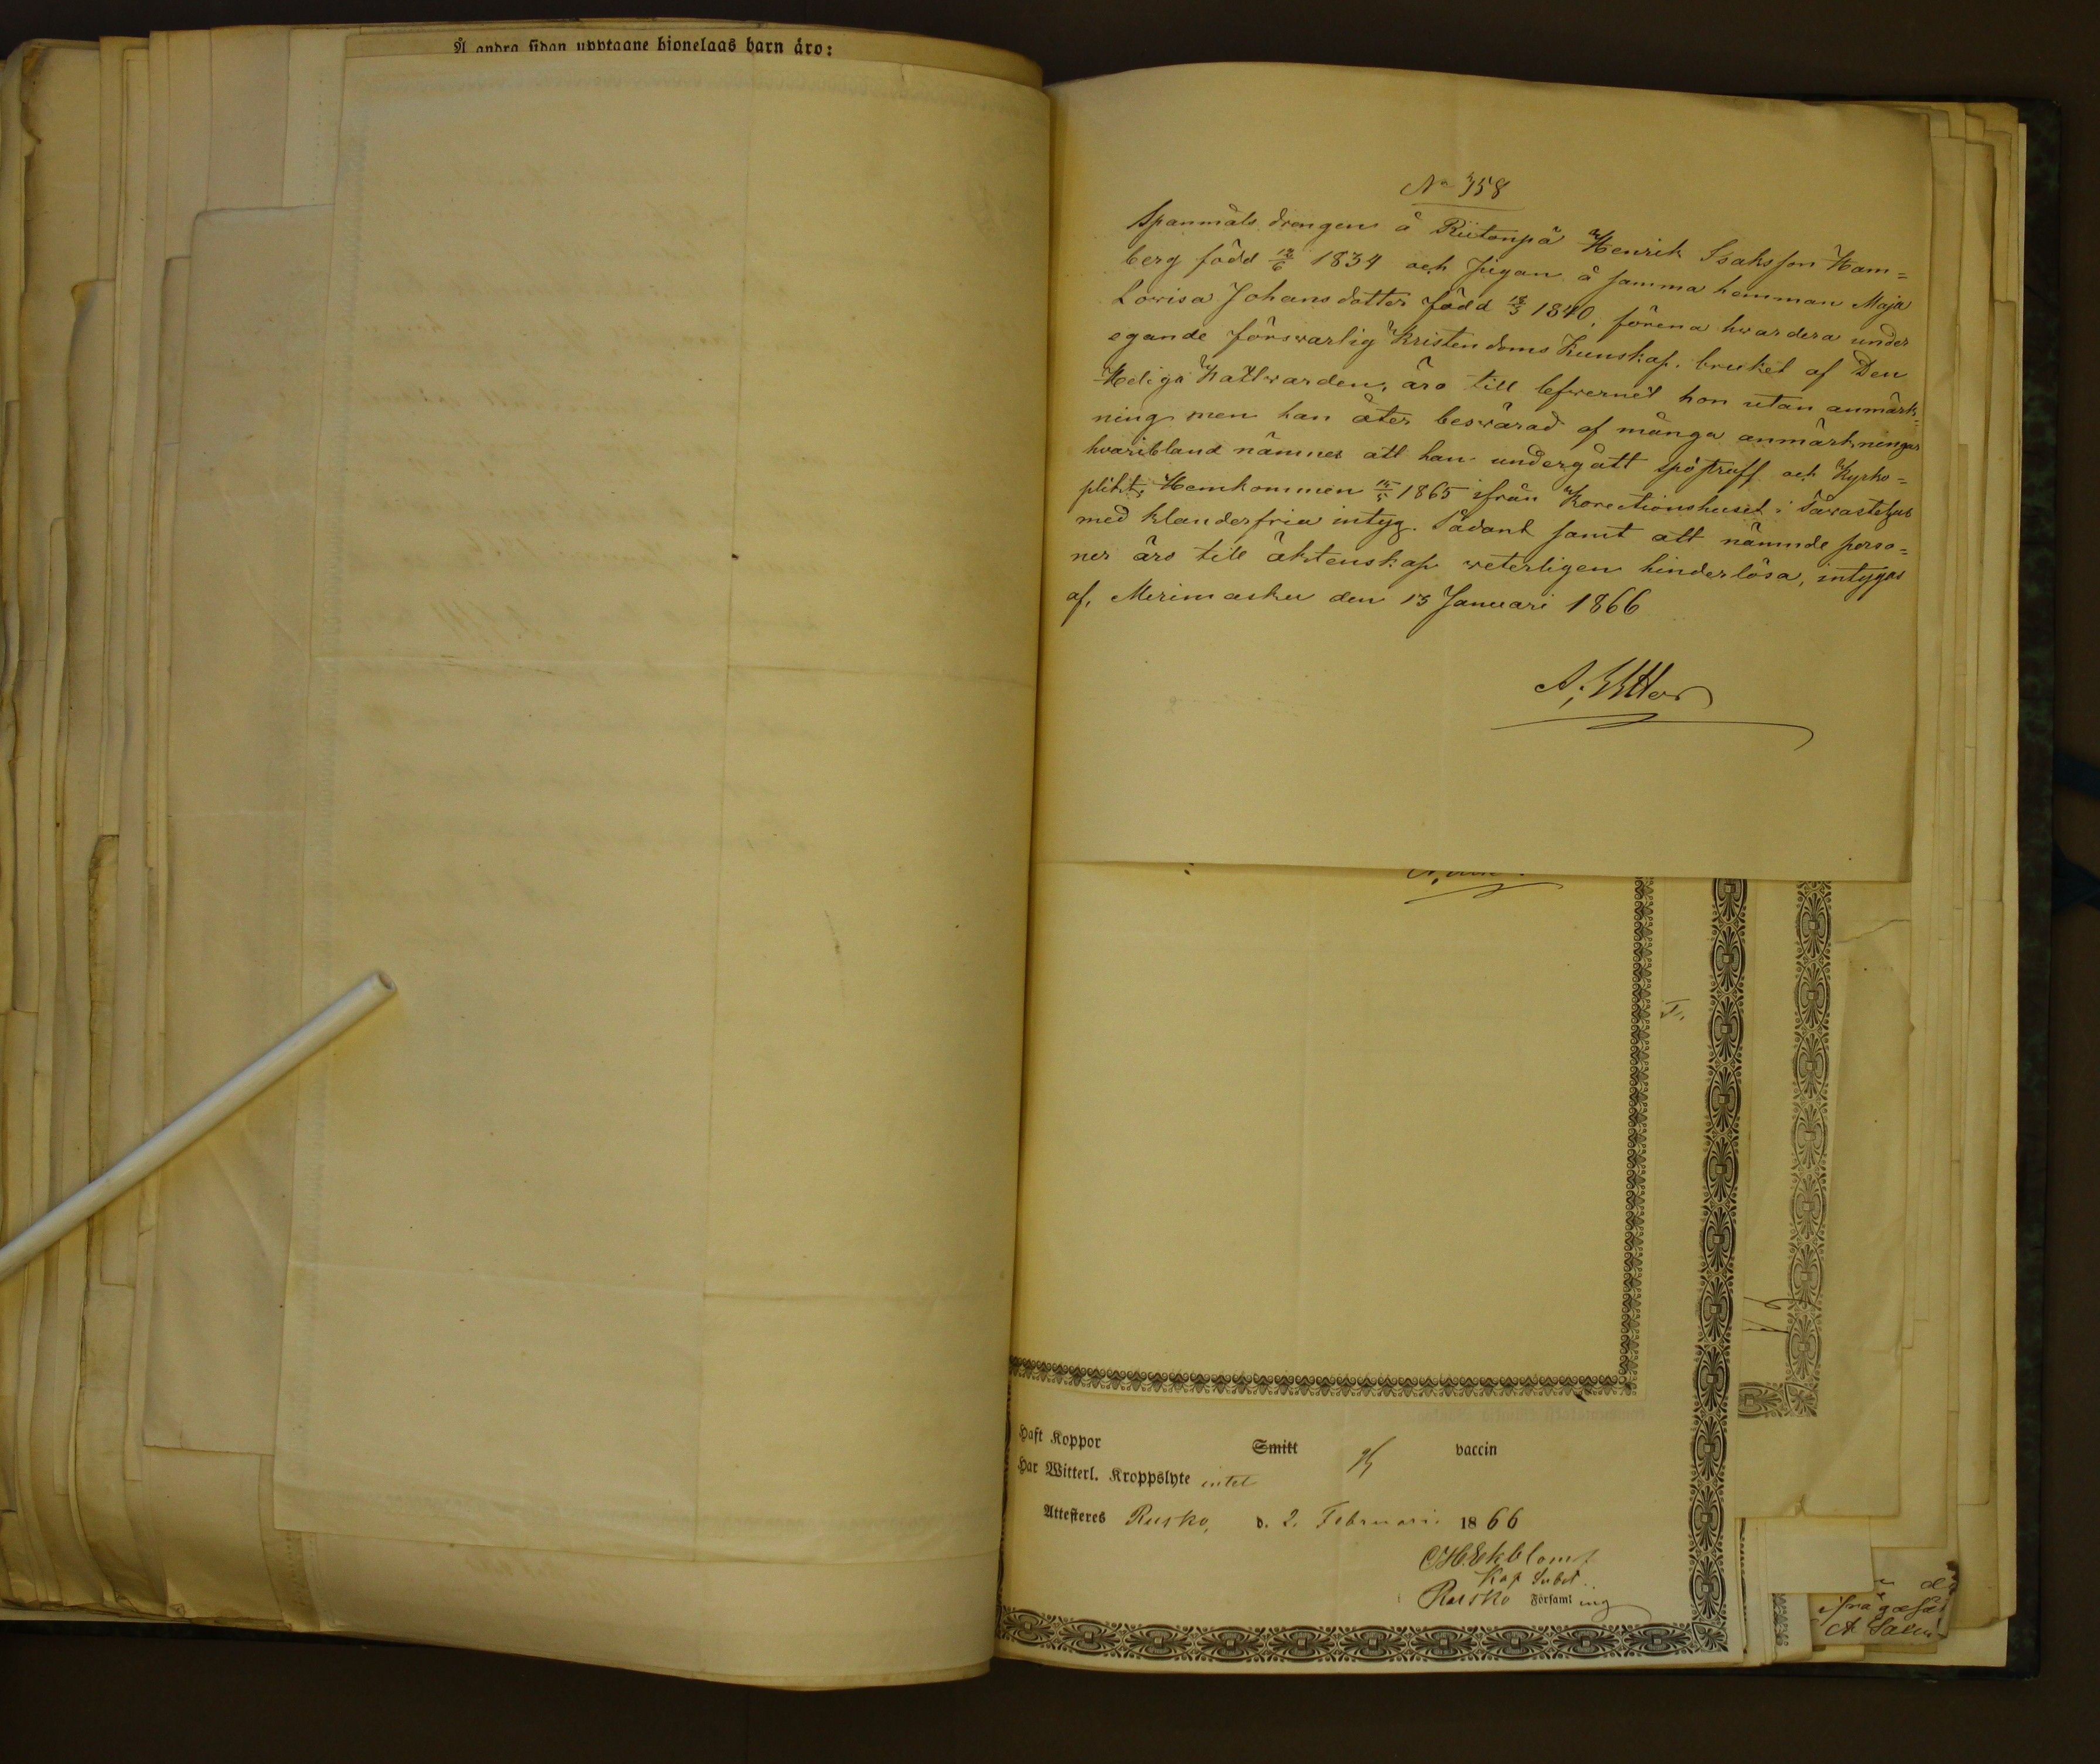 Å andra sidan upptagne hjonelags barn äro:
No 358
Spanmåls drengen å Riitanpä Henrik Isaksson Ham=
berg född 12/6 1834 och pigan å samma hemman Maja
Lovisa Johansdotter född 18/3 1840, förena hvardera under
egande försvarlig Kristendoms Kunskap, bruket af Den
Heliga Nattwarden, äro till lefwernet hon utan anmärk=
ning men han åter beswärad af många anmärkningar
hvaribland nämnes att han undergått spöstraff och Kyrko=
plikt, Hemkommen 15/5 1865 ifrån Korectionshuset i Tavastehus
med klanderfria intyg. Sådant samt att nämnde perso=
ner äro till äktenskap veterligen hinderlösa, intygas
af, Merimasku den 13 Januari 1866
Haft Koppor Smitt vaccin
Har Witterl. Kroppslyte intet
Attesteres Rusko, d. 2. Februari 1866
C H Ekblom
Kap Subst.
Rusko Församling